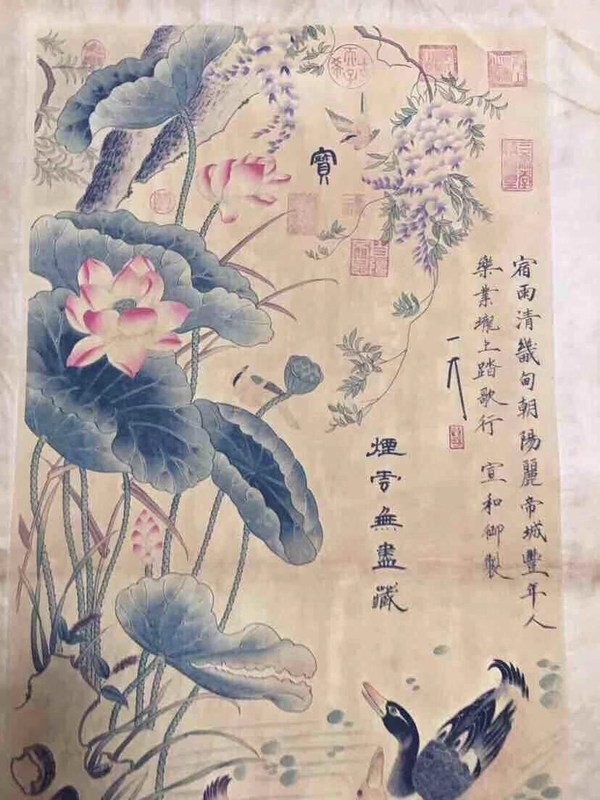 宿雨清畿甸朝陽麗帝城豐年人
樂業壠上踏歌行 宣和御製
煙雲無盡藏
寶